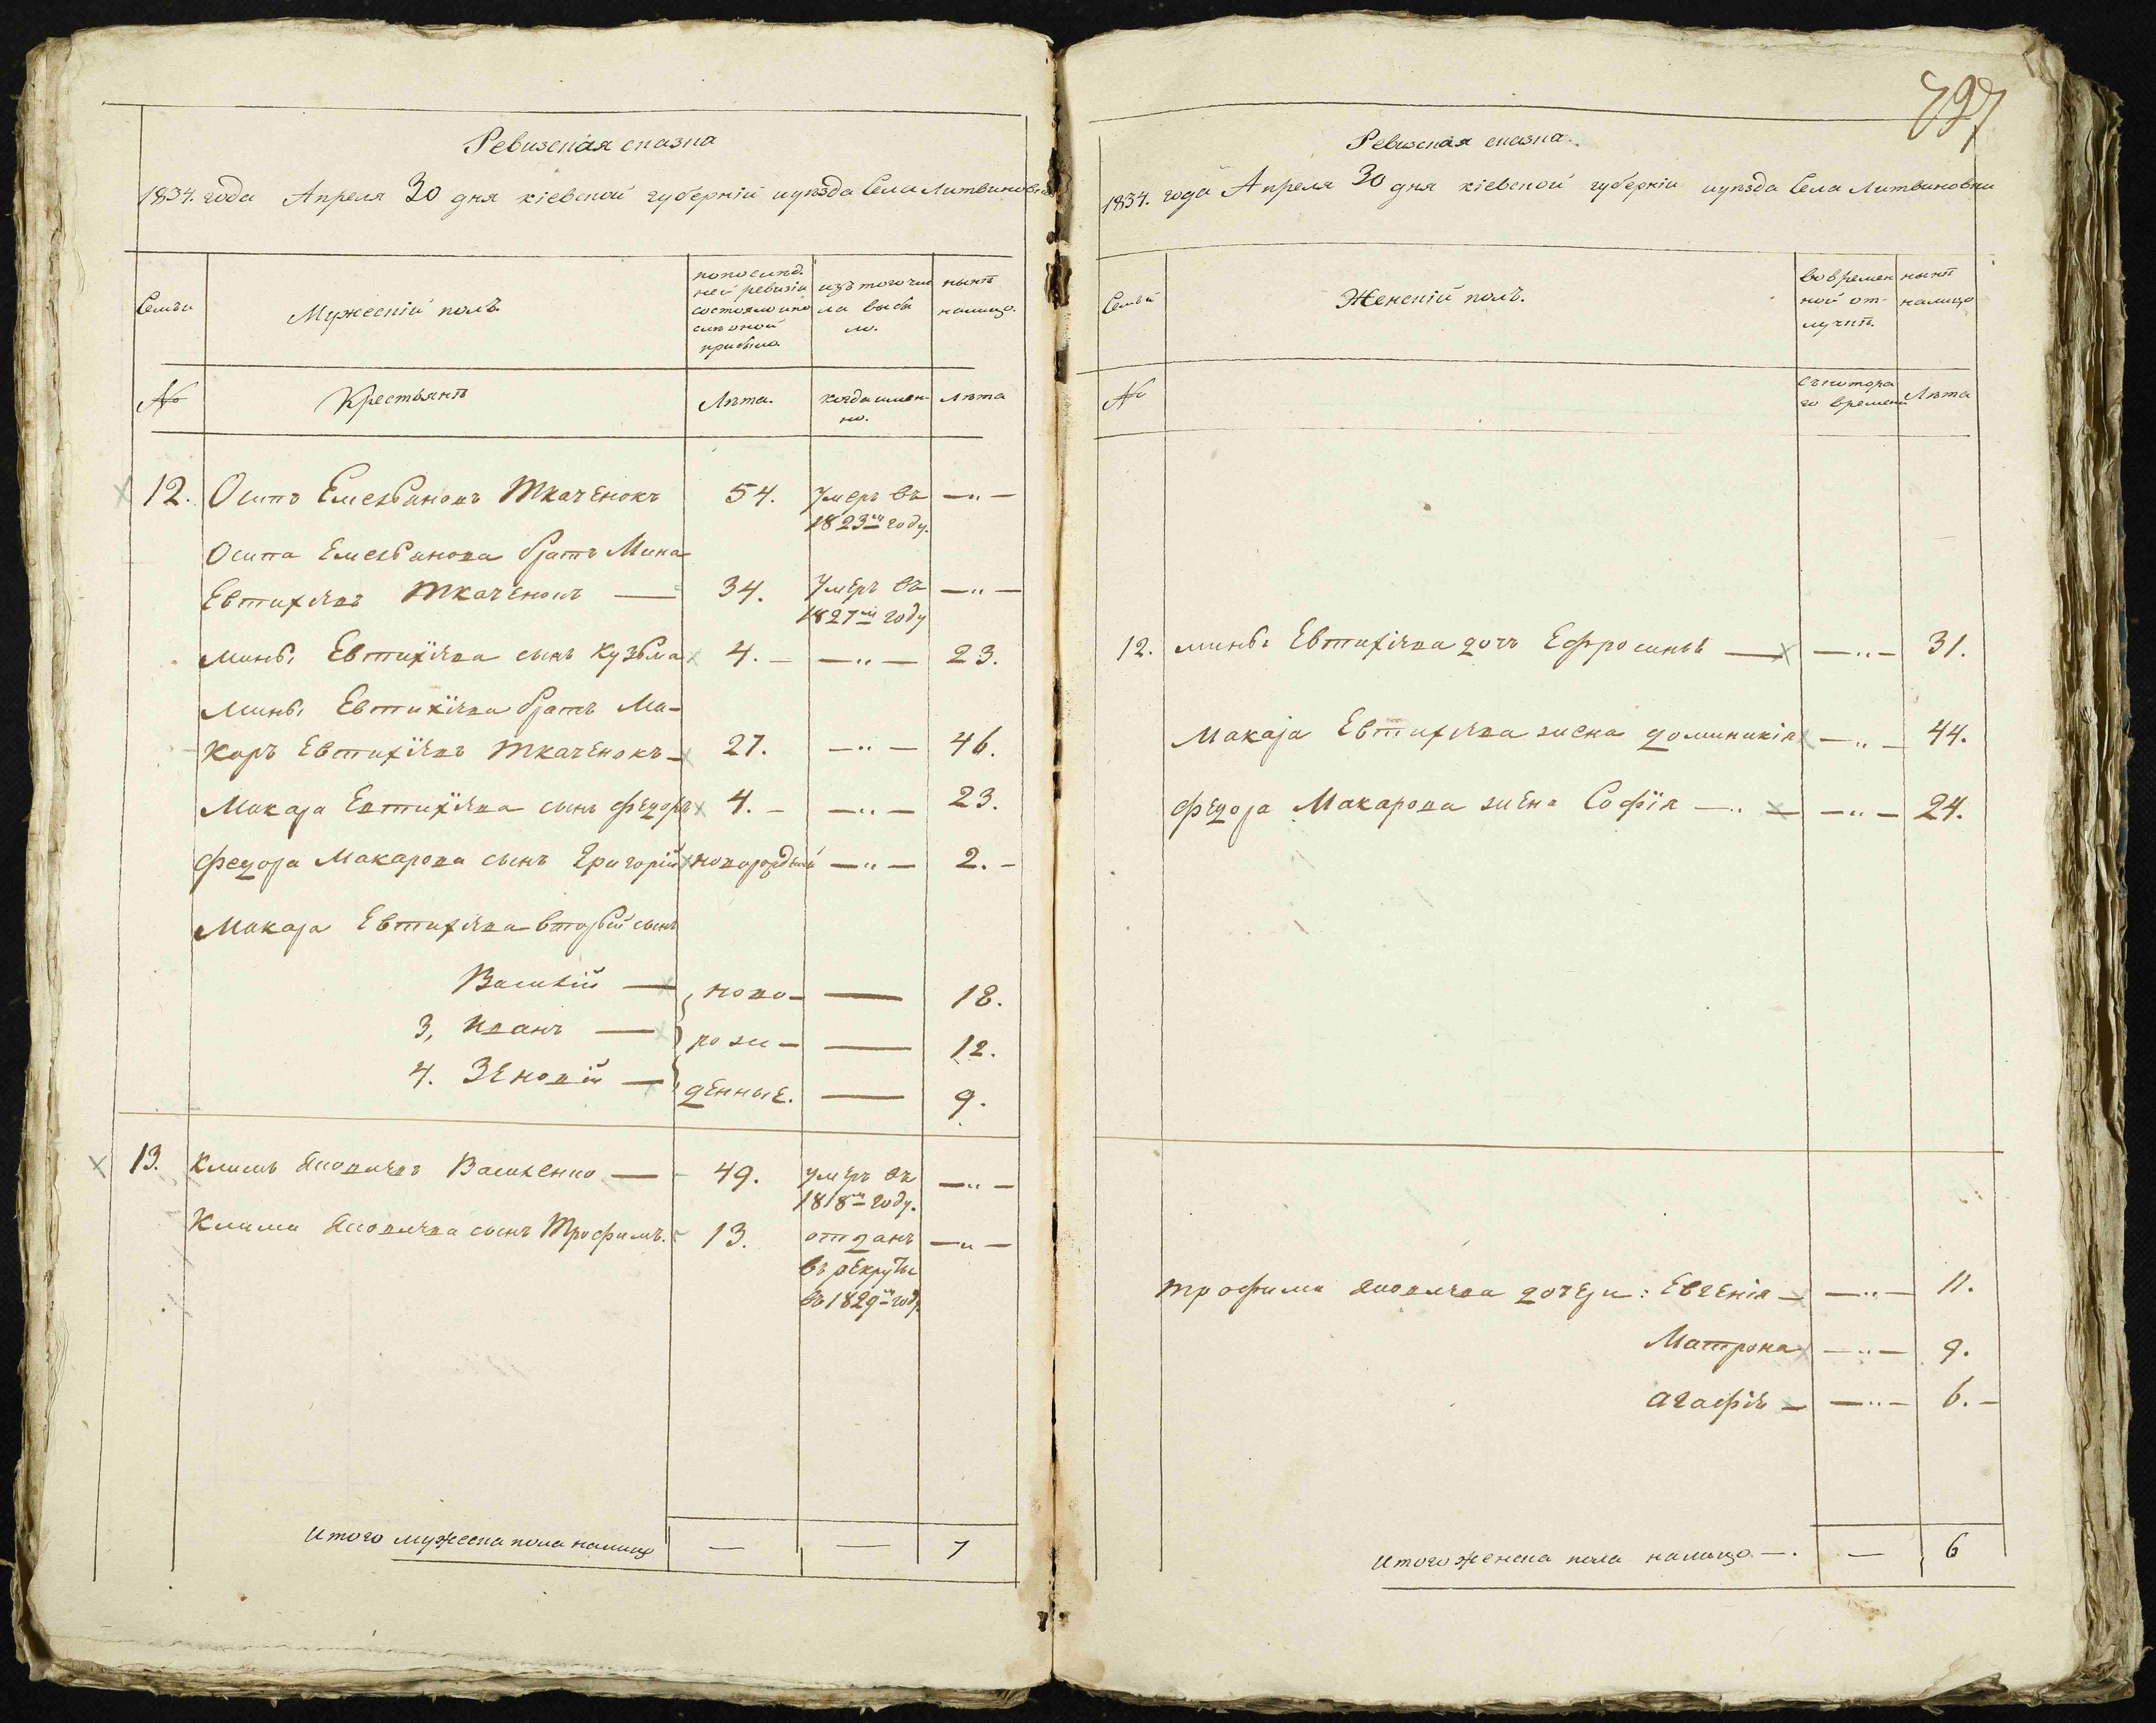 Ревизская сказка
1834. года Апреля 30 дня кіевской губерній иуѣзда Села Литвиновки
Семьи
Мужескій полъ.
попослѣд.
ней ревизіи
состояло ипо
слѣ оной
прибыло
изъ того чис
ла выбы
ло.
нынѣ
налицо.
№
Крестьянѣ
Лѣта.
когда имен-
но.
Лѣта
12. Осипъ Емельяновъ Ткаченокъ 54. Умеръ въ —"—
1823м году.
Осипа Емельянова братъ Мина
Евтихіевъ Ткаченокъ — 34. Умеръ въ —"—
1827м году
Мины Евтихіева сынъ Кузьма 4. — —"— 23.
Мины Евтихіева братъ Ма-
каръ Евтихіевъ Ткаченокъ — 27. —"— 46.
Макара Евтихіева сынъ Федоръ 4. — —"— 23.
Федора Макарова сынъ Григорій —"— 2. —
Макара Евтихіева вторый сынъ
Василій — ново- — 18.
3, Иванъ — рож- — 12.
4. Зеновій — денные. — 9.
13. Климъ Яковлевъ Василенко — 49. умеръ въ —"—
1818м году.
Клима Яковлева сынъ Трофимъ. 13. отданъ —"—
въ рекруты
въ 1829м году
Итого мужеска пола налицо — — 7
797
Ревизская сказка.
1834. года Апреля 30 дня кіевской губерніи иуѣзда Села Литвиновки
Семьи
Женскій полъ.
во времен
ной от-
лучкѣ.
нынѣ
налицо
№
съ котора
го времени
Лѣта
12. Мины Евтихіева дочь Ефросинья — —"— 31.
Макара Евтихіева жена Доминикія —"— 44.
Федора Макарова жена Софія —"— —"— 24.
Трофима Яковлева дочери: Евгенія — —"— 11.
Матрона —"— 9.
Агафія — —"— 6. —
Итого женска пола налицо —. — 6